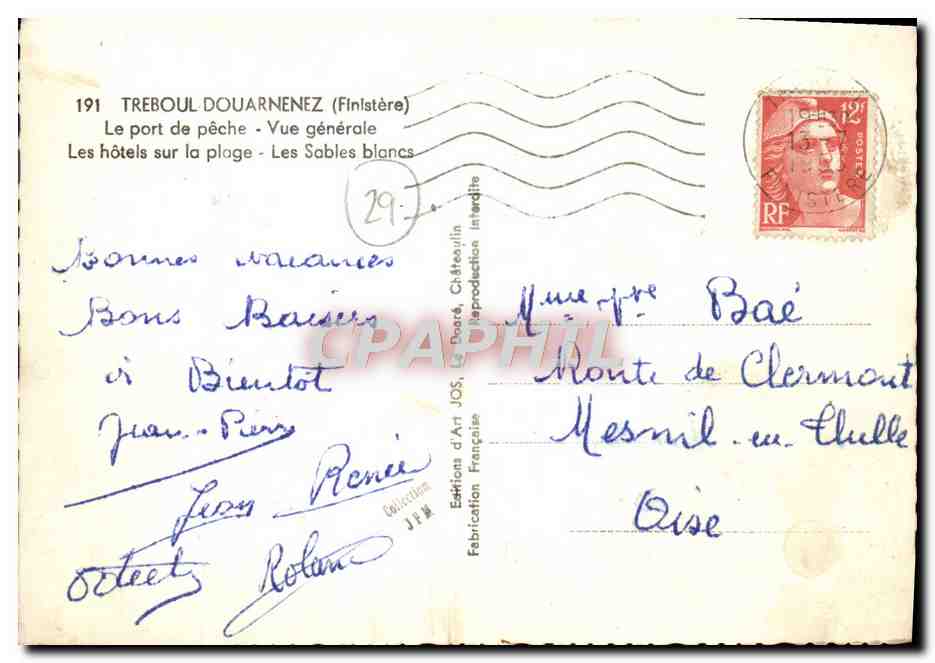 191 TREBOUL DOUARNENEZ (Finistère)
Le port de pêche - Vue générale
Les hôtels sur la plage - Les Sables blancs
29
Bonnes vacances
Bons Baisers
à Bientot
Jean-Pierre
Jean Renée
Roland
Collection
JFM
Editions d'Art JOS, Le Doaré, Châteaulin
Fabrication Française
Reproduction Interdite
12F
POSTES
RF
Mme Vve Baé
Route de Clermont
Mesnil-en-Thelle
Oise
CPAPHIL